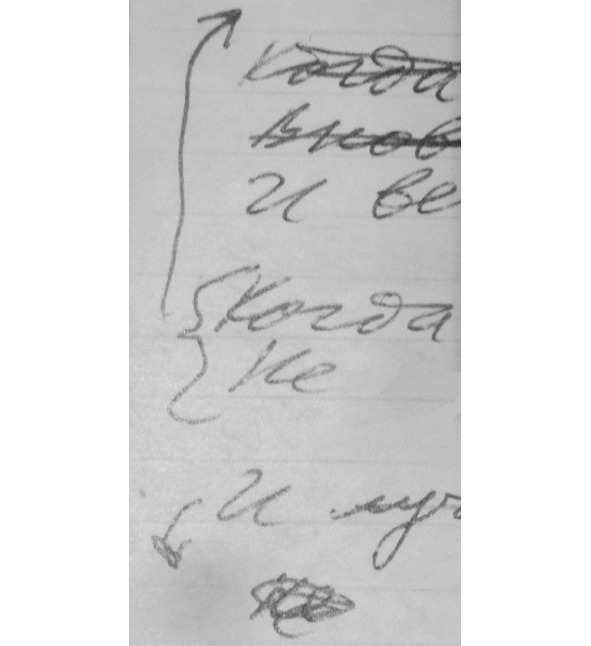 Когда
Внов
И ве
Когда
Не
И луч